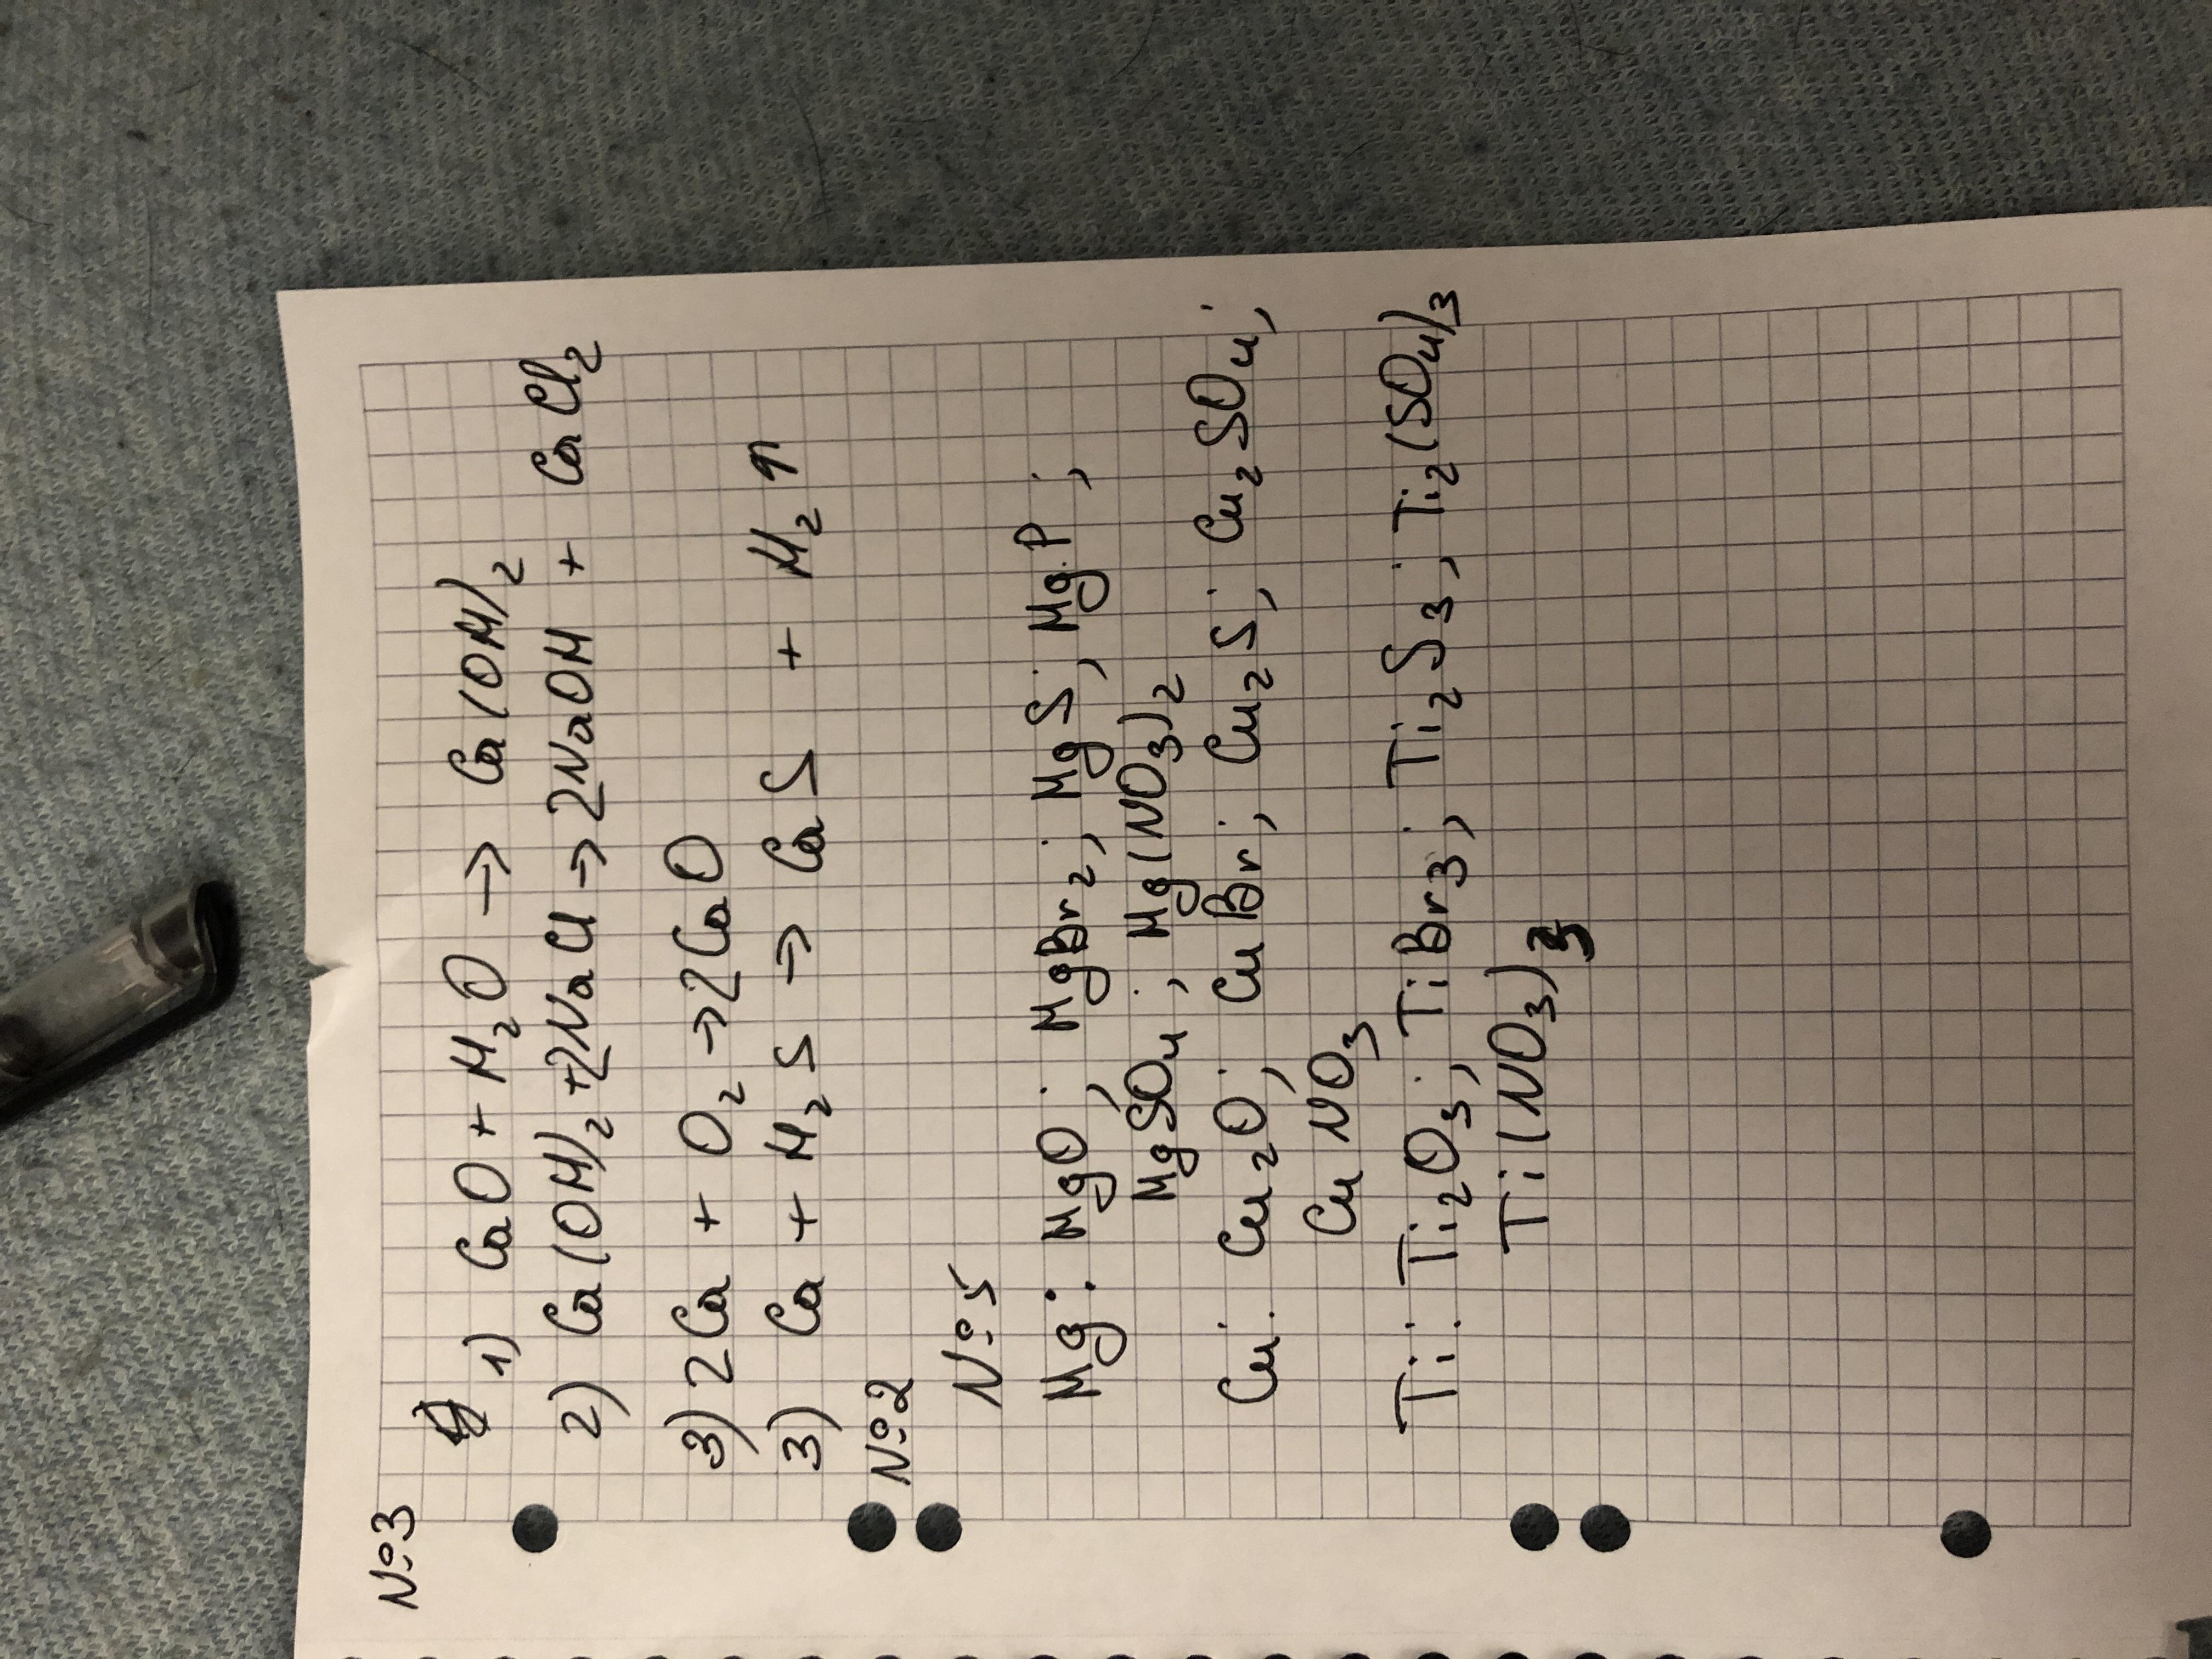 №3
1) CaO + H₂O → Ca(OH)₂
2) Ca(OH)₂ + 2NaCl → 2NaOH + CaCl₂
3) 2Ca + O₂ → 2CaO
3) Ca + H₂S → CaS + H₂↑
№2
№5
Mg: MgO; MgBr₂; MgS; MgP;
MgSO₄; Mg(NO₃)₂
Cu: Cu₂O; CuBr; Cu₂S; Cu₂SO₄;
CuNO₃
Ti: Ti₂O₃; TiBr₃; Ti₂S₃; Ti₂(SO₄)₃
Ti(NO₃)₃